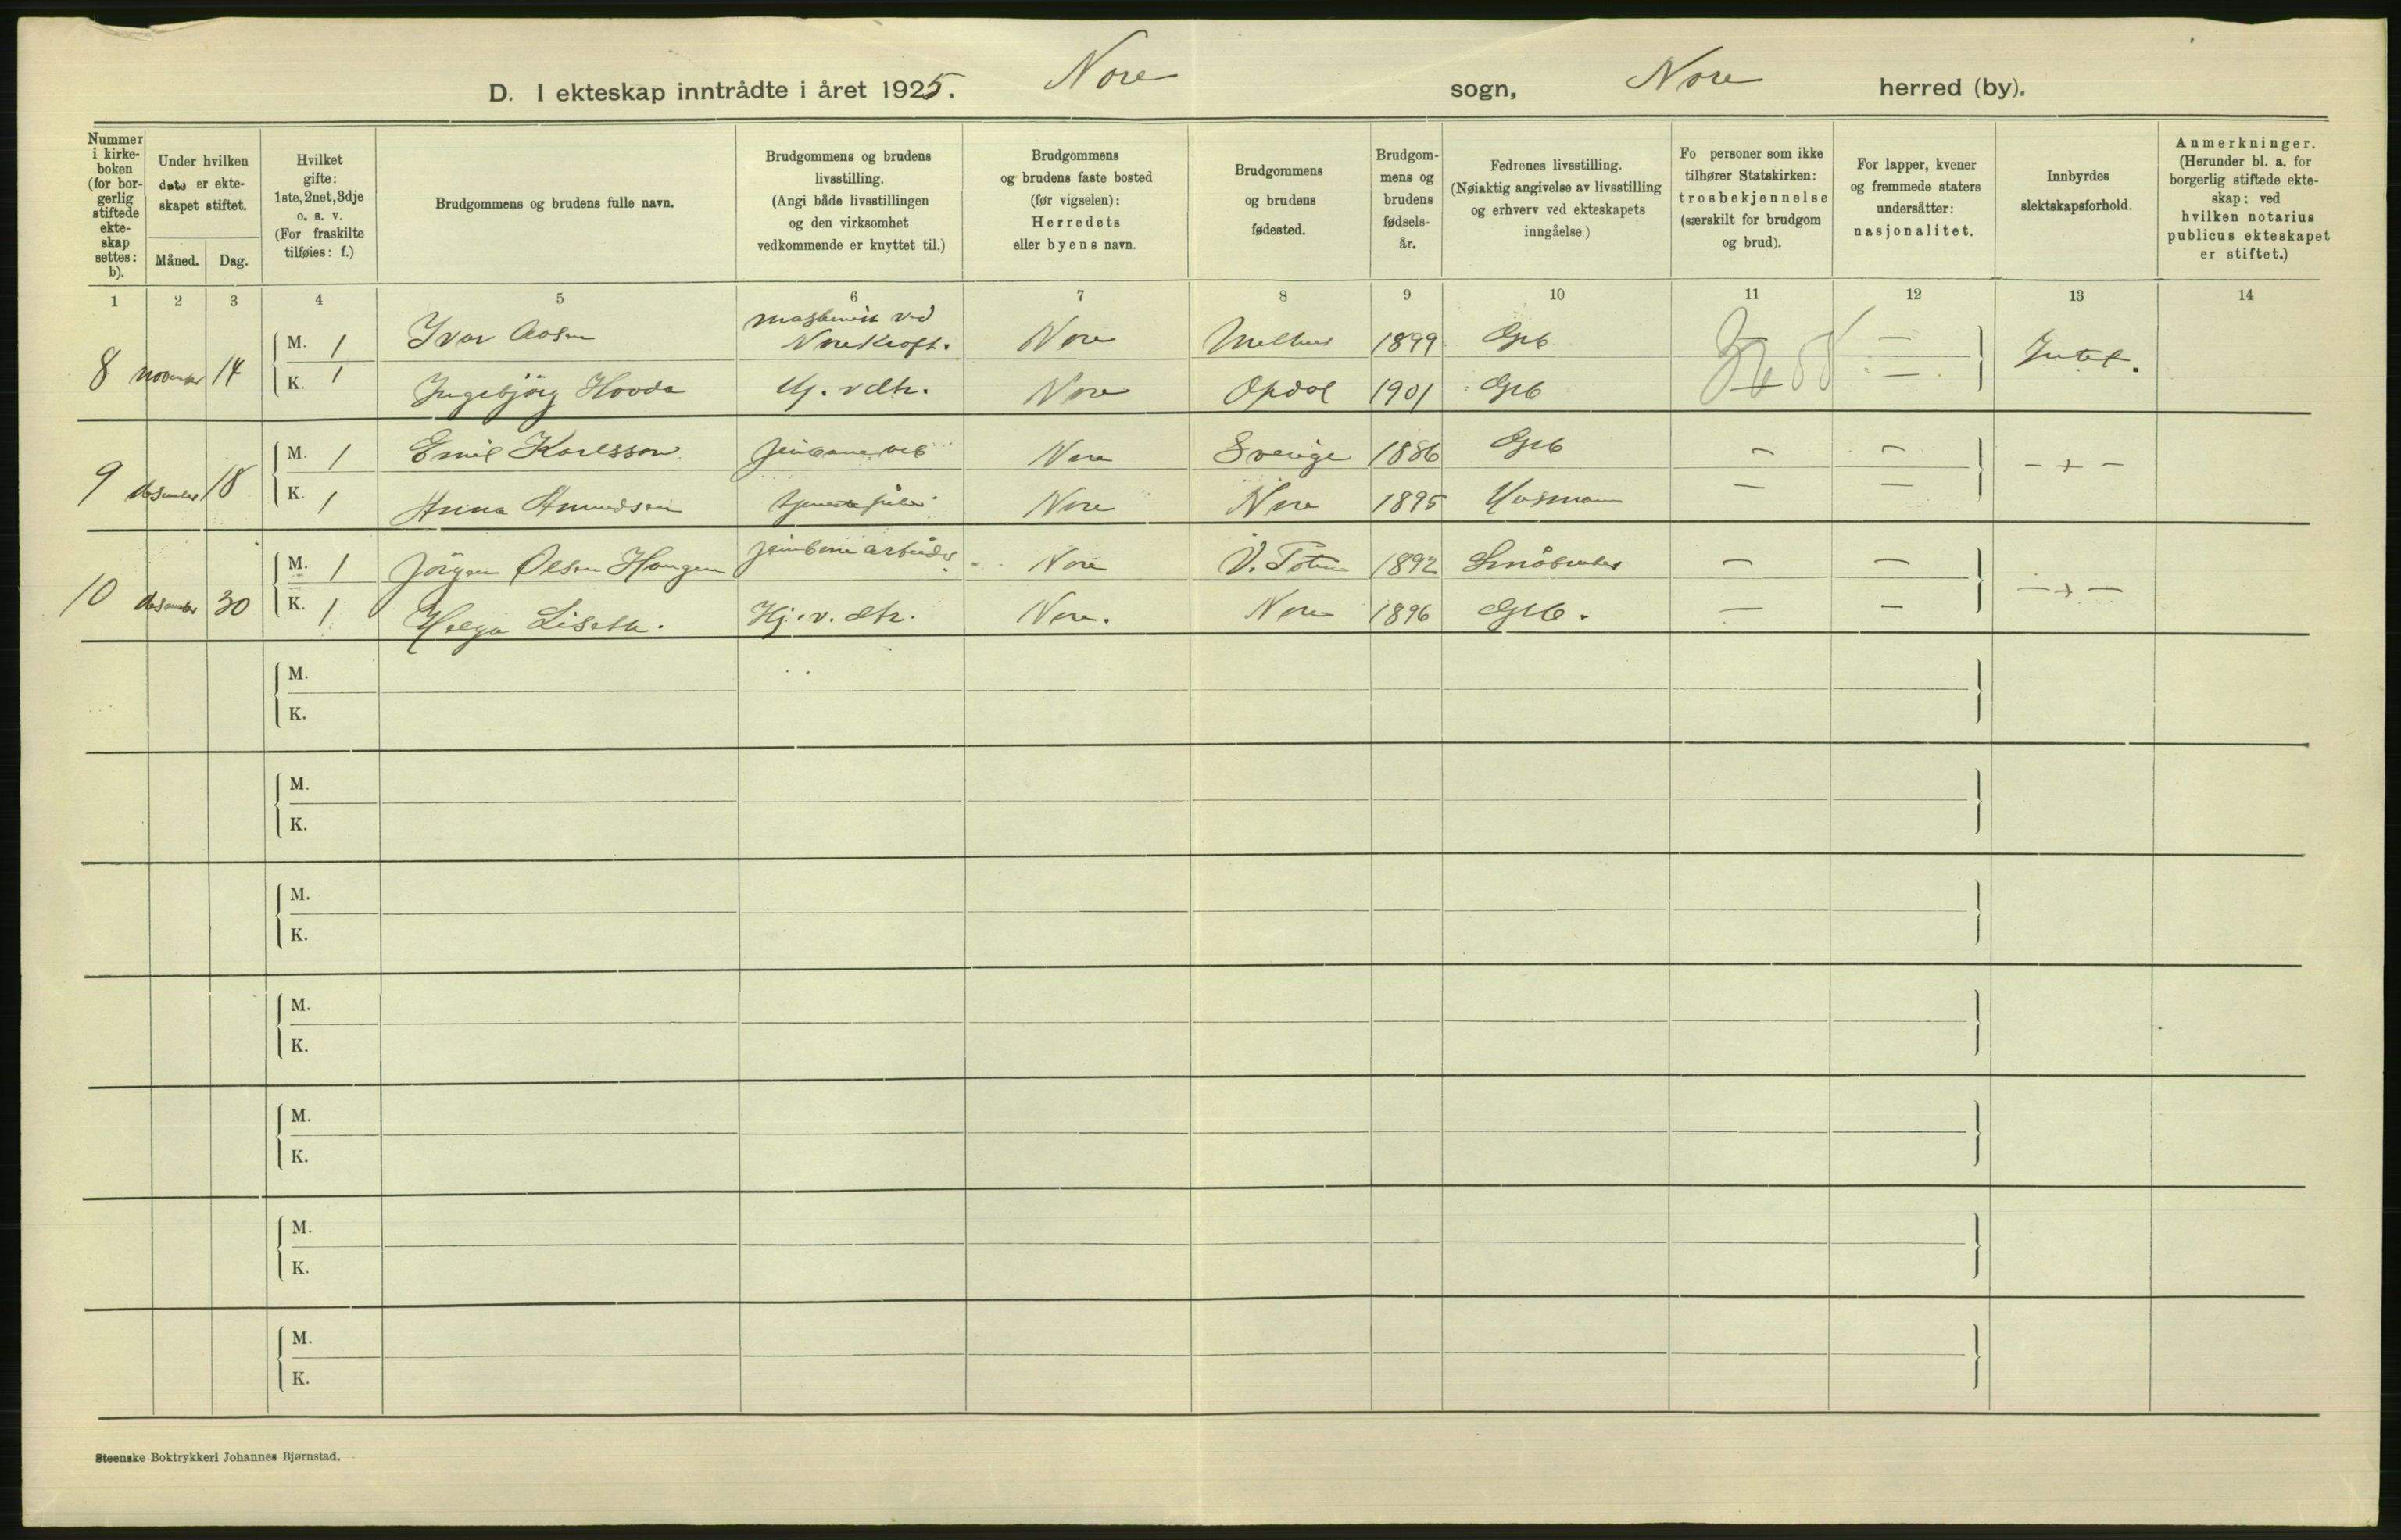 D. I ekteskap inntrådte i året 1925. Nore sogn, Nore herred (by).
Nummer i kirke-boken (for bor-gerlig stiftede ekte-skap settes: b).
Under hvilken dato er ekte-skapet stiftet.
Måned. Dag.
Hvilket gifte: 1ste, 2net, 3dje o. s. v. (For fraskilte tilføies: f.)
Brudgommens og brudens fulle navn.
Brudgommens og brudens livsstilling. (Angi både livsstillingen og den virksomhet vedkommende er knyttet til.)
Brudgommens og brudens faste bosted (før vigselen): Herredets eller byens navn.
Brudgommens og brudens fødested.
Brudgom-mens og brudens fødsels-år.
Fedrenes livsstilling. (Nøiaktig angivelse av livsstilling og erhverv ved ekteskapets inngåelse.)
Fo personer som ikke tilhører Statskirken: trosbekjennelse (særskilt for brudgom og brud).
For lapper, kvener og fremmede staters undersåtter: nasjonalitet.
Innbyrdes slektskapsforhold.
Anmerkninger. (Herunder bl. a. for borgerlig stiftede ekte-skap: ved hvilken notarius publicus ekteskapet er stiftet.)
1 2 3 4 5 6 7 8 9 10 11 12 13 14
8 november 14 M. 1 Ivar Aasen maskinist ved Nore Kraft. Nore Melhus 1899 Grb — — Intet.
K. 1 Ingebjörg Hovda Hj. v. dtr. Nore Opdal 1901 Grb — —
9 desember 18 M. 1 Emil Karlsson Nore Sverige 1886 Grb — — — + —
K. 1 Anna Amundsen Nore Nore 1895 Husmann — —
10 desember 30 M. 1 Jörgen Olsen Haugen jernbanearbeider. Nore V. Toten 1892 Småbruker — — — + —
K. 1 Helga Liseth. Hj. v. dtr. Nore. Nore 1896 Grb. — —
M.
K.
M.
K.
M.
K.
M.
K.
M.
K.
M.
K.
M.
K.
Steenske Boktrykkeri Johannes Bjørnstad.